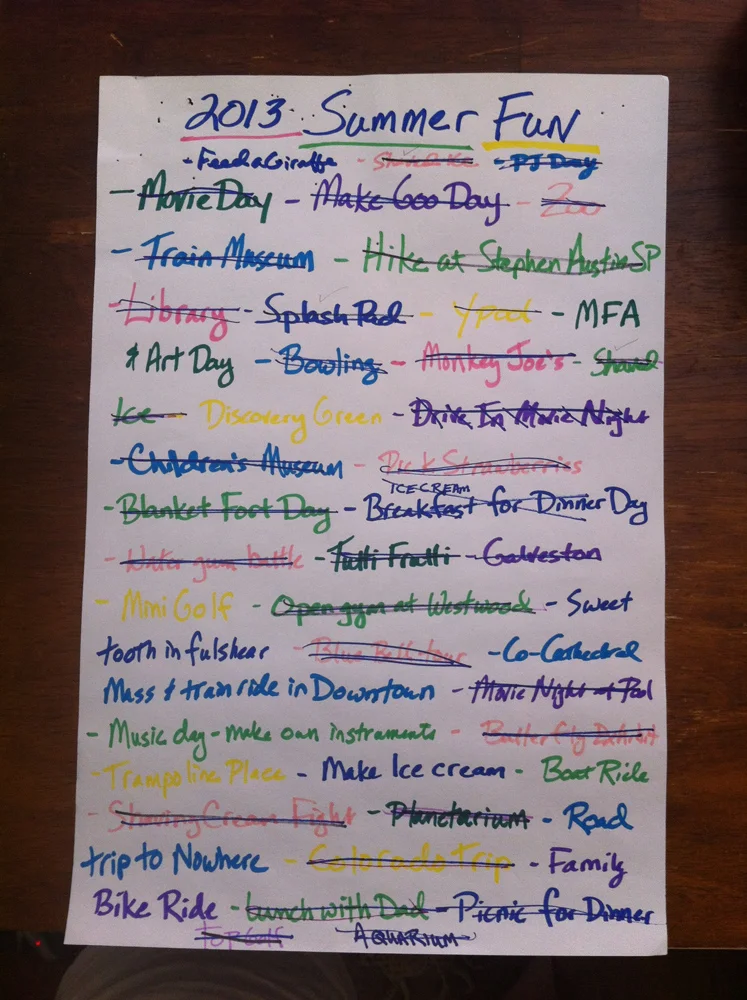 2013 Summer Fun
- Feed a Giraffe - Shaved Ice - PJ Day
- Movie Day - Make Goo Day - Zoo
- Train Museum - Hike at Stephen Austin SP
- Library - Splash Pad - - MFA
& Art Day - Bowling - Monkey Joe's - Shaved
Ice - Discovery Green - Drive In Movie Night
- Children's Museum - Pick Strawberries
ICE CREAM
- Blanket Fort Day - Breakfast for Dinner Day
- Water gun battle - Tutti Frutti - Galveston
- Mini Golf - Open gym at Westwood - Sweet
tooth in fulshear - Blue Bell tour - Co-Cathedral
Mass & train ride in Downtown - Movie Night at Pool
- Music day - make own instruments - Butterfly Exhibit
- Trampoline Place - Make Ice cream - Boat Ride
- Shaving Cream Fight - Planetarium - Road
trip to Nowhere - Colorado Trip - Family
Bike Ride - Lunch with Dad - Picnic for Dinner
Top Golf AQUARIUM